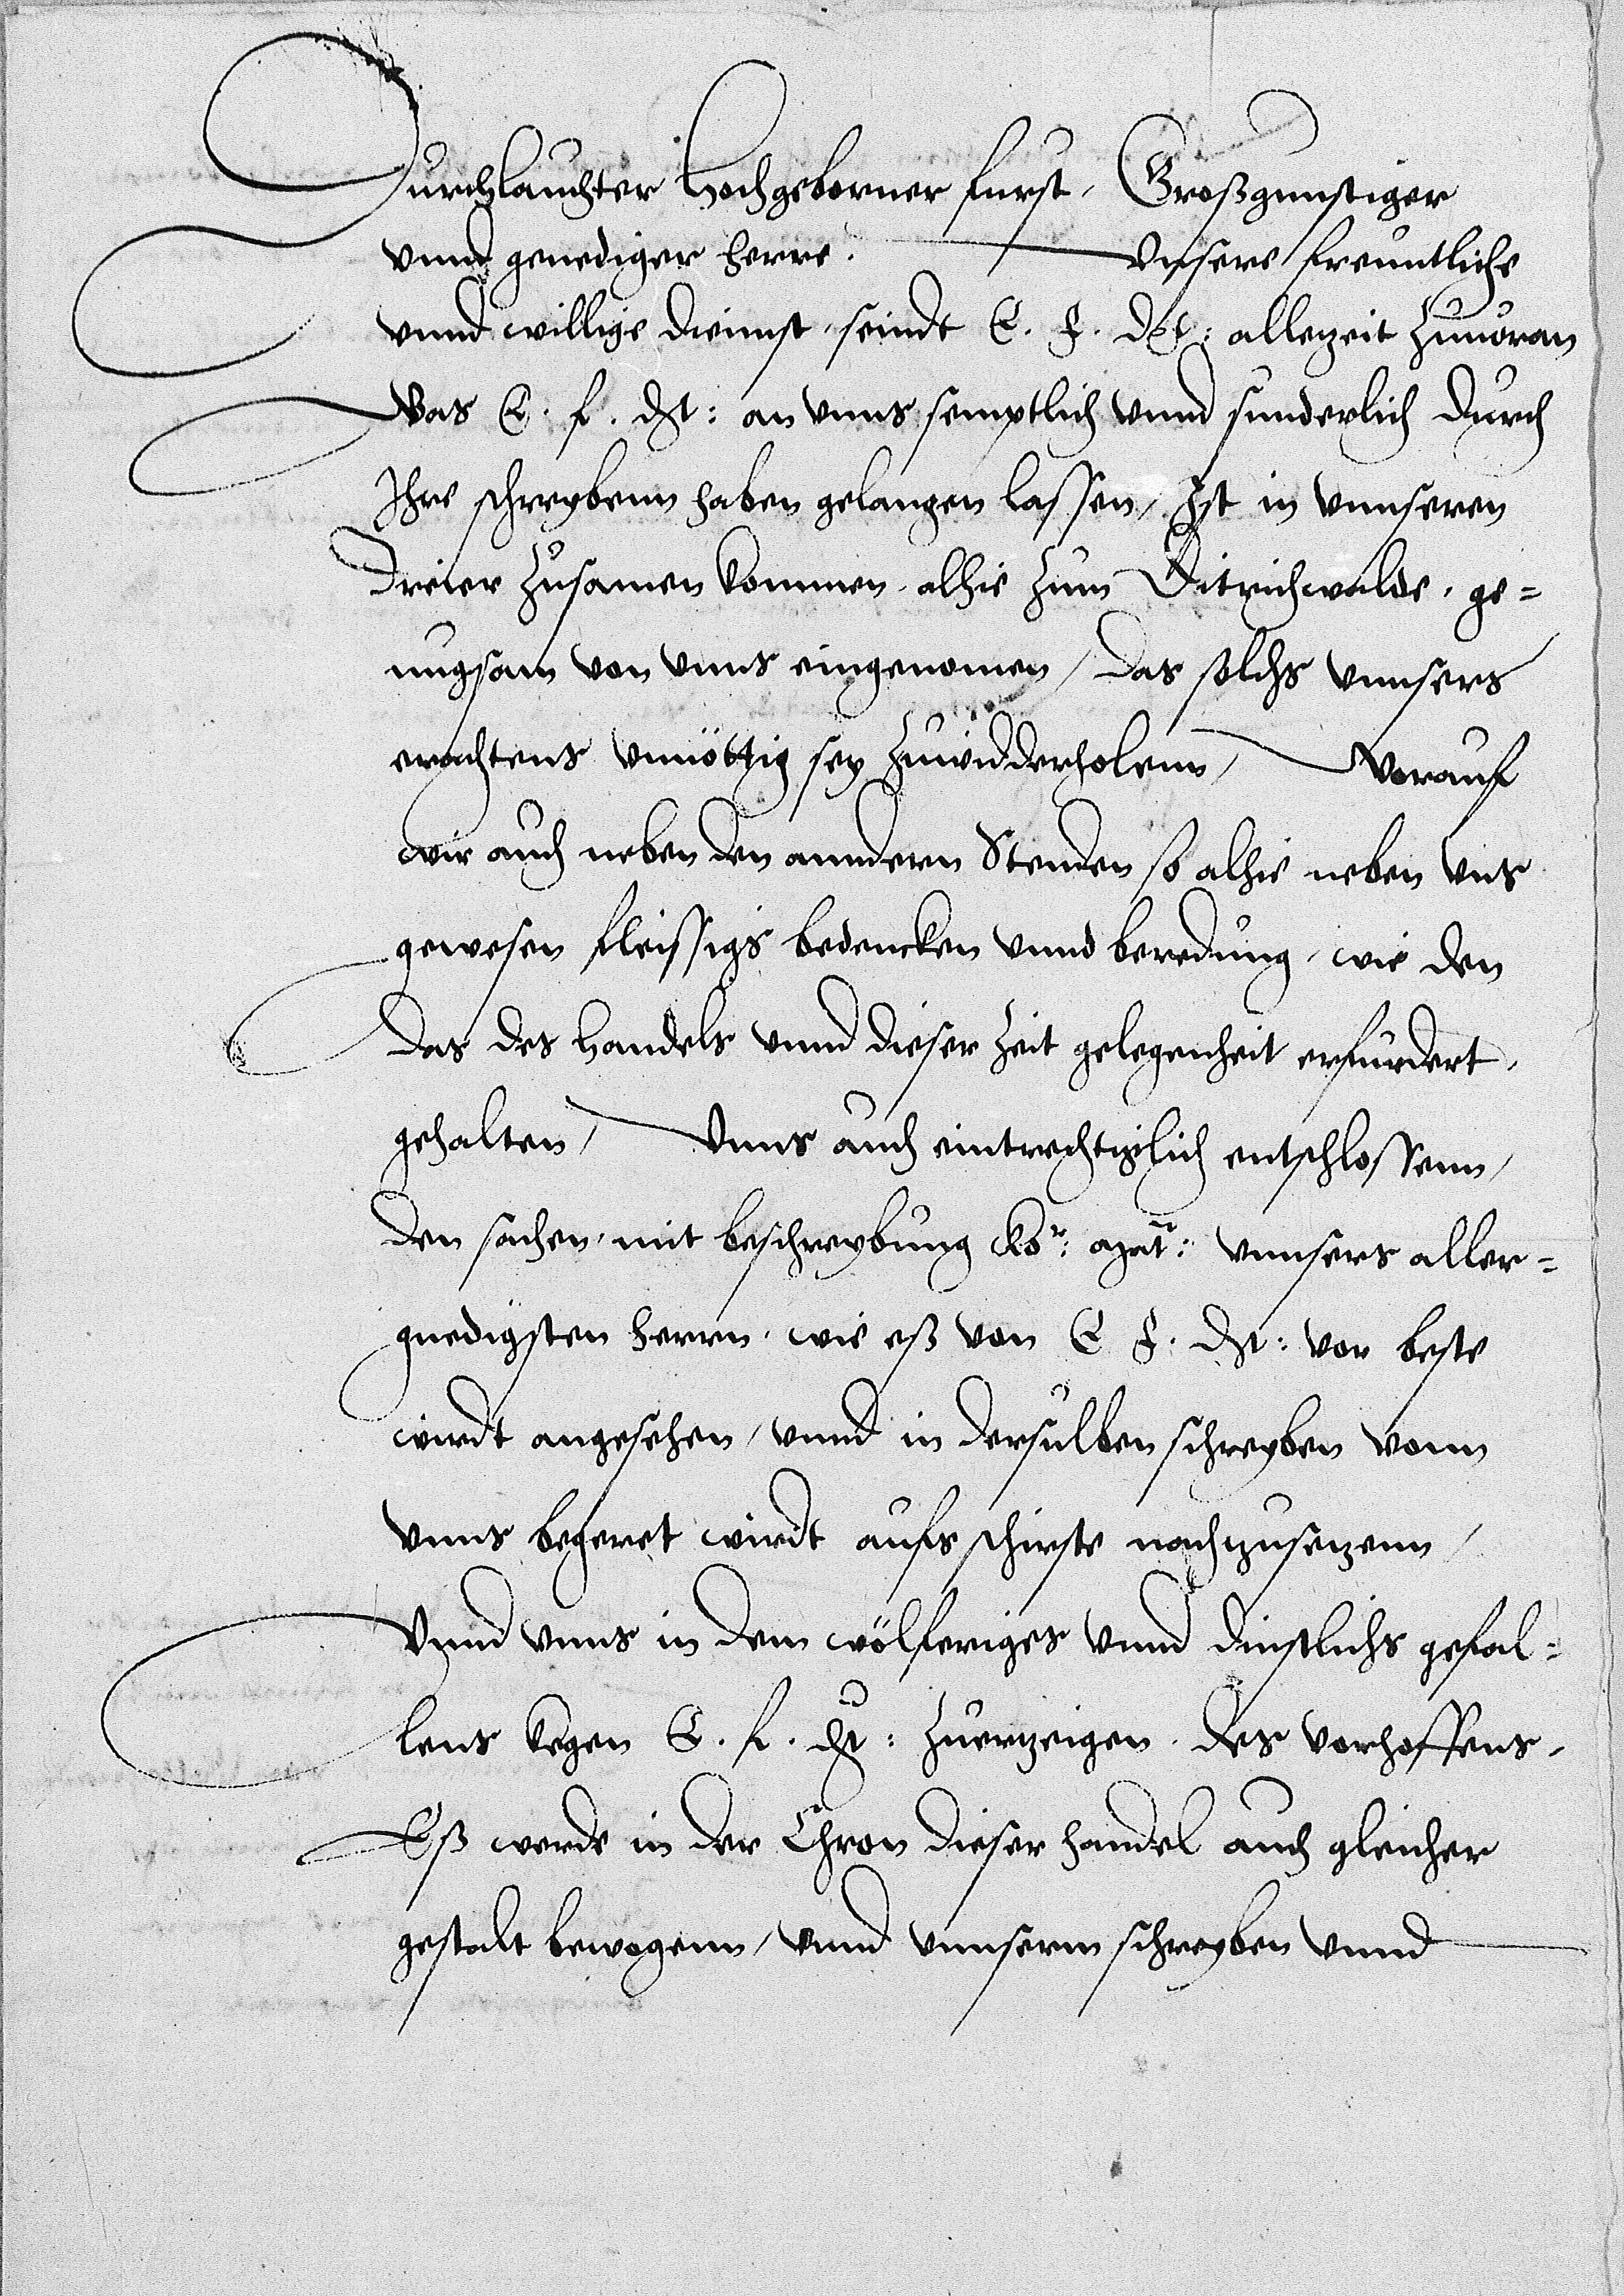 Durchlauchter Hochgeborner furst, Großgunstiger
vnnd genediger herre. Vnsere freuntliche
vnnd willige dienst seindt E. F. Dt: allezeit zuuoran
Was E. f. Dt: an vnns semptlich vnnd sunderlich durch
Ihre schreybenn haben gelangen lassen, Ist in vnnseren
Dreier Zusamen kommen alhie zum Ditrichwalde, ge=
nugsam von vnns eingenomen, das solchs vnnsers
erachtens vnnöttig sey zuwidderholenn, Worauf
wir auch neben den annderen Stenden so alhie neben vns
gewesen fleissigs bedencken vnnd beredung, wie den
das des handels vnnd dieser zeit gelegenheit erfurdert,
gehalten, Vnns auch eintrechtiglich entschlossenn,
den sachen, mit beschreybung Kor: Mat: vnnsers aller=
gnedigsten herren, wie eß von E F. Dt: vor beste
wirdt angesehen, vnnd in dersulben schreyben vonn
vnns begeret wirdt aufs schirste nachzusezenn,
Vnnd vnns in dem wölferiges vnnd dinstlichs gefal=
lens kegen E. f. Dt: zuerzeigen. Des vorhoffens,
Eß werde in der Chron dieser handel auch gleicher
gestalt bewogenn, vnnd vnnserm schreyben vnnd